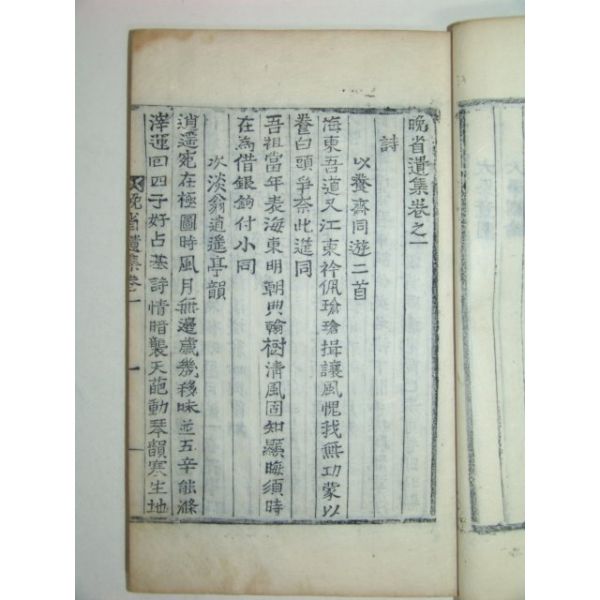 晩省遺集卷之一
詩
以養齋同遊二首
海東吾道又江東衿佩瑲瑲揖讓風愧我無功蒙以
養白頭爭奈此道同
吾祖當年表海東明朝典翰樹淸風固知顯晦須時
在爲借銀鉤付小同
次淡翁逍遙亭韻
逍遙宛在極圖時風月無邊歲幾移味並五辛能滌
滓逕回四子好占基詩情暗襲天葩動琴韻寒生地
晩省遺集卷一
一